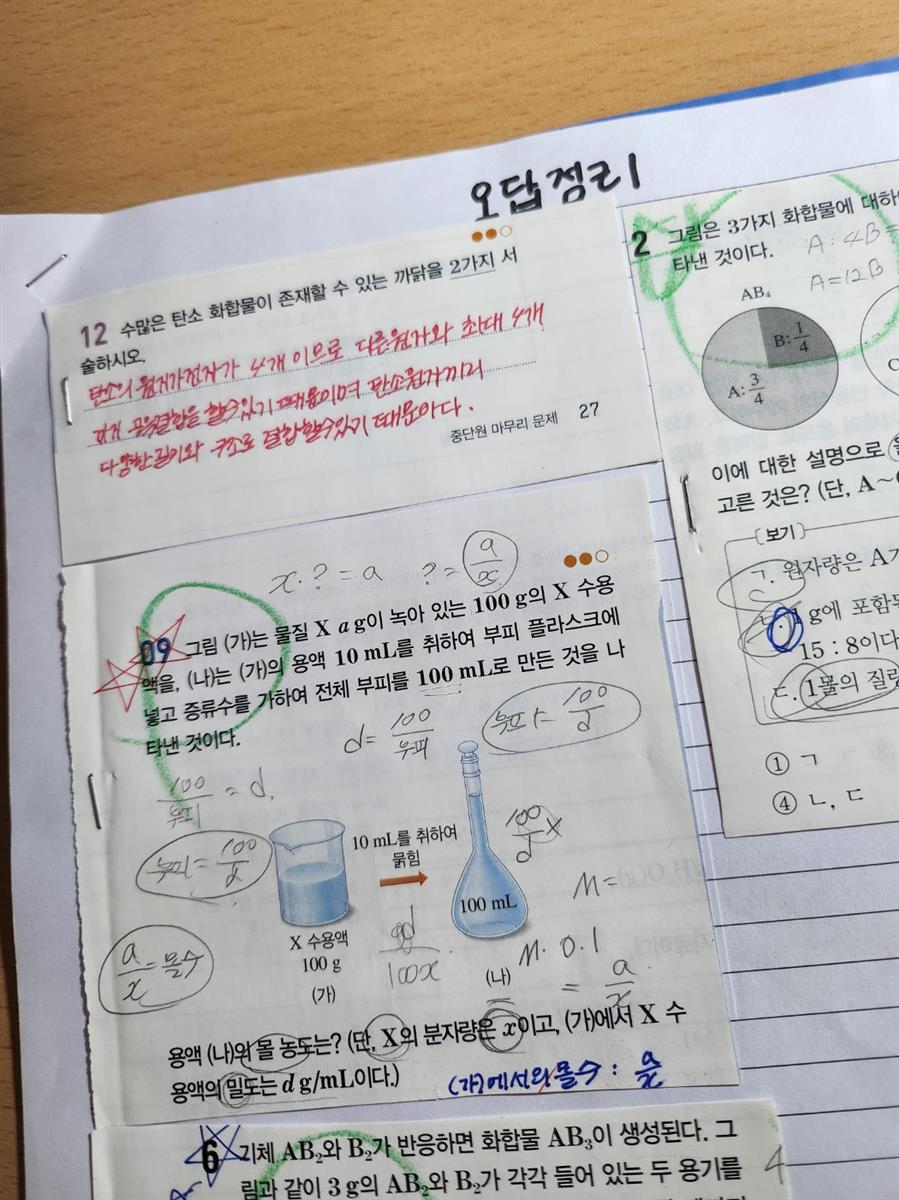 오답정리
12 수많은 탄소 화합물이 존재할 수 있는 까닭을 2가지 서
술하시오.
탄소의 원자가전자가 4개 이므로 다른원자와 최대 4개
까지 공유결합을 할수있기 때문이며 탄소원자끼리
다양한길이와 구조로 결합할수있기 때문이다.
중단원 마무리 문제 27
x·? = a ? = a/x
09 그림 (가)는 물질 X a g이 녹아 있는 100 g의 X 수용
액을, (나)는 (가)의 용액 10 mL를 취하여 부피 플라스크에
넣고 증류수를 가하여 전체 부피를 100 mL로 만든 것을 나
타낸 것이다.
d = 100/부피
부피 = 100/d
100/부피 = d
부피 = 100/d
10 mL를 취하여
묽힘
100/d
100 mL
M=
X 수용액
100 g
(가)
100x
(나)
M· 0.1
= a/x
a/x = 몰수
용액 (나)의 몰 농도는? (단, X의 분자량은 x이고, (가)에서 X 수
용액의 밀도는 d g/mL이다.)
(가)에서의 몰수 : a/x
6 기체 AB₂와 B₂가 반응하면 화합물 AB₃이 생성된다. 그
림과 같이 3 g의 AB₂와 B₂가 각각 들어 있는 두 용기를
4
2 그림은 3가지 화합물에 대하
타낸 것이다.
A : 4B =
A = 12B
AB₄
B: 1/4
A: 3/4
C
이에 대한 설명으로
고른 것은? (단, A~
보기
ㄱ. 원자량은 A가
ㄴ. 1 g에 포함된
15 : 8이다
ㄷ. 1몰의 질량
① ㄱ
④ ㄴ, ㄷ